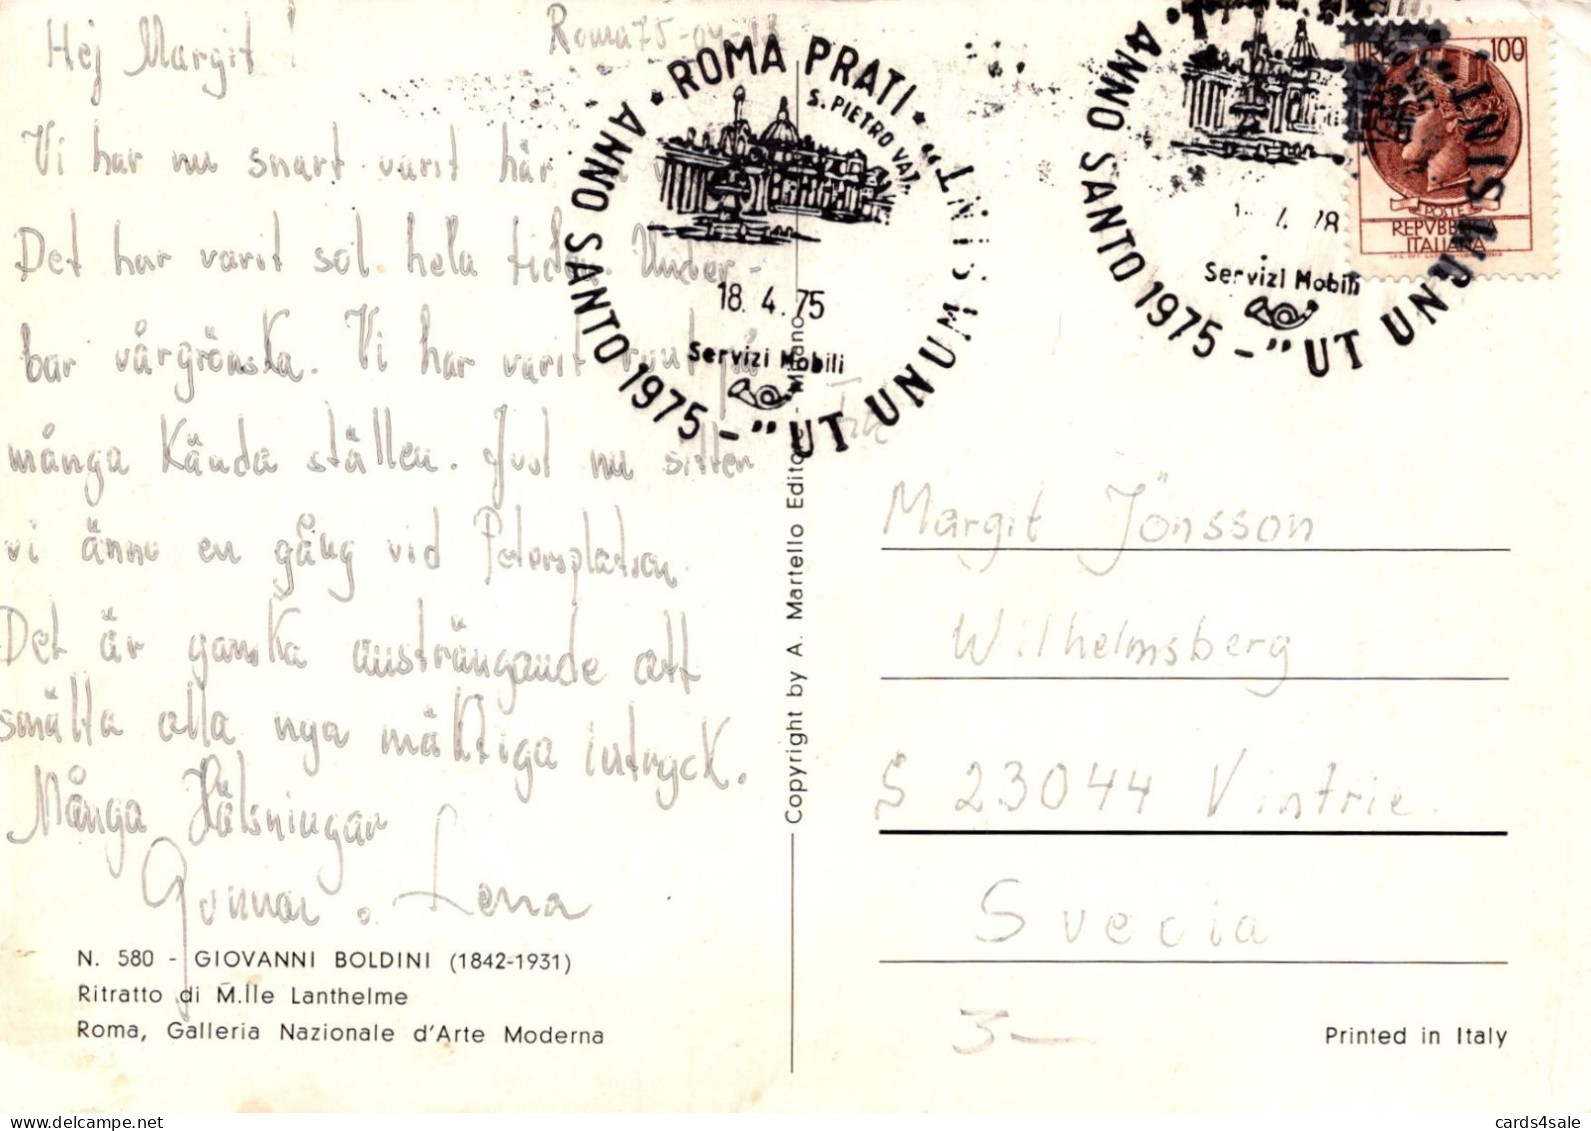 Hej Margit!
Roma 75-04-18
Vi har nu snart varit här
Det har varit sol hela tiden. Under-
bar vårgrönska. Vi har varit runt på
många kända ställen. Just nu sitter
vi ännu en gång vid Petersplatsen.
Det är ganska ansträngande att
smälta alla nya mäktiga intryck.
Många Hälsningar
Gunnar o. Lena
N. 580 - GIOVANNI BOLDINI (1842-1931)
Ritratto di M.lle Lanthelme
Roma, Galleria Nazionale d'Arte Moderna
Copyright by A. Martello Editore - Milano
• ROMA PRATI •
S. PIETRO VAT.
ANNO SANTO 1975 - "UT UNUM SINT"
18. 4. 75
Servizi Mobili
ANNO SANTO 1975 - "UT UNUM SINT"
Servizi Mobili
LIRE 100
POSTE
REPVBBLICA
ITALIANA
Margit Jönsson
Wilhelmsberg
S 23044 Vintrie
Svecia
3-
Printed in Italy
cards4sale